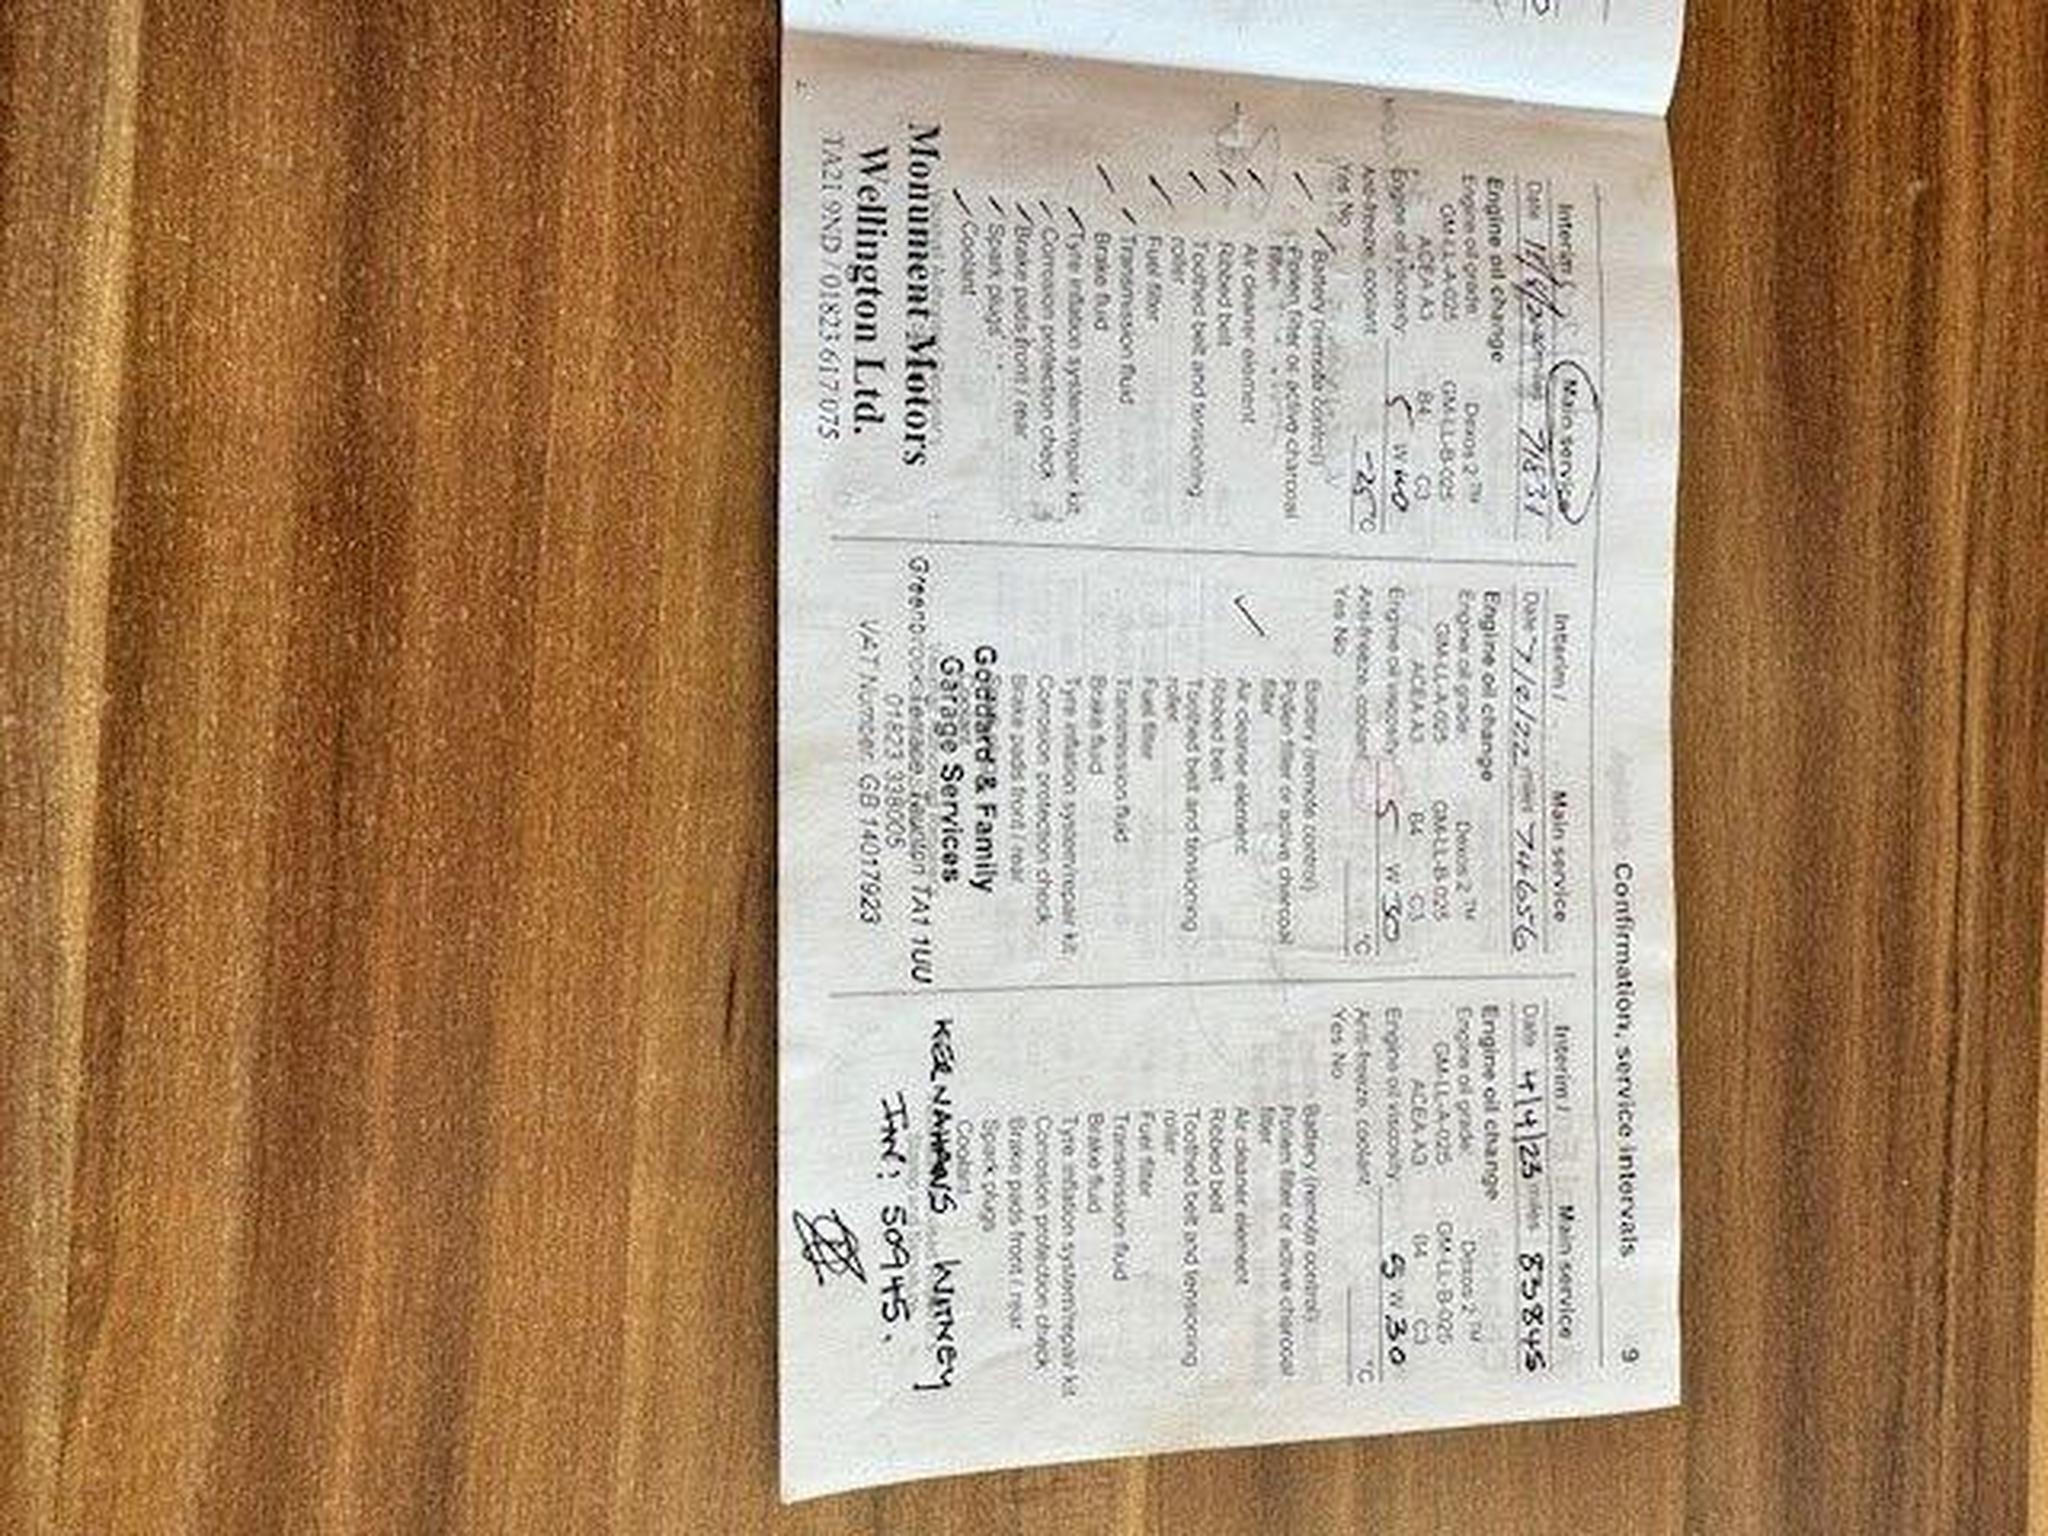 Confirmation, service intervals 9
Interim / Main service
Date miles 71831
Engine oil change
Engine oil grade Dexos 2 ™
GM-LL-A-025 GM-LL-B-025
ACEA A3 B4 C3
Engine oil viscosity 5 W 40
Anti-freeze, coolant -25 °C
Yes No
Battery (remote control)
Pollen filter or active charcoal
filter
Air cleaner element
Ribbed belt
Toothed belt and tensioning
roller
Fuel filter
Transmission fluid
Brake fluid
Tyre inflation system/repair kit
Corrosion protection check
Brake pads front / rear
Spark plugs
Coolant
Monument Motors
Wellington Ltd.
TA21 9ND 01823 617075
Interim / Main service
Date miles 74656
Engine oil change
Engine oil grade Dexos 2 ™
GM-LL-A-025 GM-LL-B-025
ACEA A3 B4 C3
Engine oil viscosity 5 W 30
Anti-freeze, coolant °C
Yes No
Battery (remote control)
Pollen filter or active charcoal
filter
Air cleaner element
Ribbed belt
Toothed belt and tensioning
roller
Fuel filter
Transmission fluid
Brake fluid
Tyre inflation system/repair kit
Corrosion protection check
Brake pads front / rear
Goddard & Family
Garage Services
Greenbrook Terrace, Taunton TA1 1UU
01823 338005
VAT Number: GB 14017923
Interim / Main service
Date 4/4/23 miles 83845
Engine oil change
Engine oil grade Dexos 2 ™
GM-LL-A-025 GM-LL-B-025
ACEA A3 B4 C3
Engine oil viscosity 5 W 30
Anti-freeze, coolant °C
Yes No
Battery (remote control)
Pollen filter or active charcoal
filter
Air cleaner element
Ribbed belt
Toothed belt and tensioning
roller
Fuel filter
Transmission fluid
Brake fluid
Tyre inflation system/repair kit
Corrosion protection check
Brake pads front / rear
Spark plugs
Coolant
KEENAHANS WITNEY
INV: 50945.